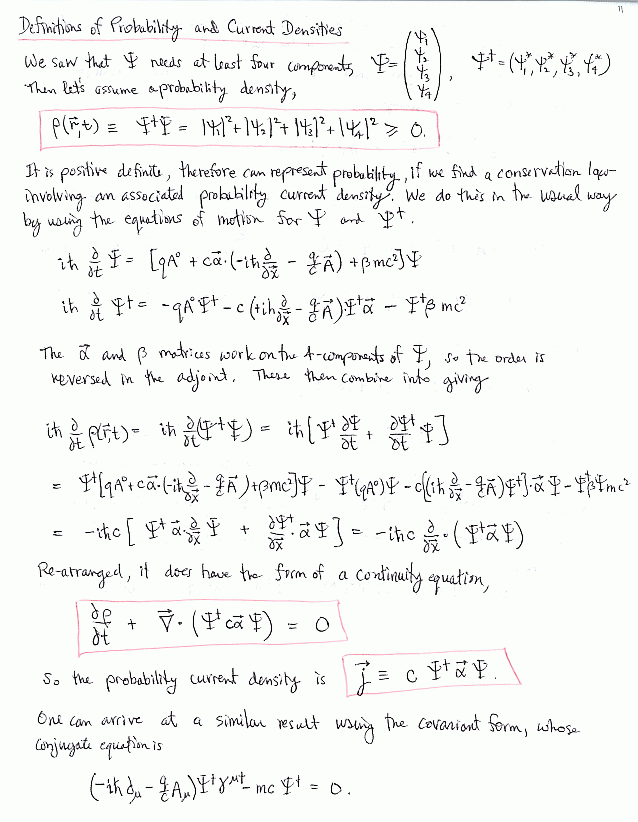 11
Definitions of Probability and Current Densities
We saw that Ψ needs at least four components, Ψ = (Ψ₁ Ψ₂ Ψ₃ Ψ₄), Ψ† = (Ψ₁*, Ψ₂*, Ψ₃*, Ψ₄*)
Then let's assume a probability density,
ρ(r⃗,t) ≡ Ψ†Ψ = |Ψ₁|² + |Ψ₂|² + |Ψ₃|² + |Ψ₄|² ⩾ 0.
It is positive definite, therefore can represent probability, if we find a conservation law
involving an associated probability current density. We do this in the usual way
by using the equations of motion for Ψ and Ψ†.
iħ ∂/∂t Ψ = [qA⁰ + cα⃗·(-iħ ∂/∂x⃗ - q/c A⃗) + βmc²]Ψ
iħ ∂/∂t Ψ† = -qA⁰Ψ† - c(+iħ ∂/∂x⃗ - q/c A⃗)Ψ†α⃗ - Ψ†β mc²
The α⃗ and β matrices work on the 4-components of Ψ, so the order is
reversed in the adjoint. These then combine into giving
iħ ∂/∂t ρ(r⃗,t) = iħ ∂/∂t (Ψ†Ψ) = iħ [Ψ† ∂Ψ/∂t + ∂Ψ†/∂t Ψ]
= Ψ†[qA⁰ + cα⃗·(-iħ ∂/∂x⃗ - q/c A⃗) + βmc²]Ψ - Ψ†(qA⁰)Ψ - c[(iħ ∂/∂x⃗ - q/c A⃗)Ψ†]·α⃗Ψ - Ψ†βΨmc²
= -iħc [Ψ† α⃗·∂/∂x⃗ Ψ + ∂Ψ†/∂x⃗ · α⃗Ψ] = -iħc ∂/∂x⃗ · (Ψ†α⃗Ψ)
Re-arranged, it does have the form of a continuity equation,
∂ρ/∂t + ∇⃗·(Ψ†cα⃗Ψ) = 0
So the probability current density is j⃗ ≡ c Ψ†α⃗Ψ.
One can arrive at a similar result using the covariant form, whose
conjugate equation is
(-iħ∂μ - q/c Aμ)Ψ†γ^μ† - mc Ψ† = 0.